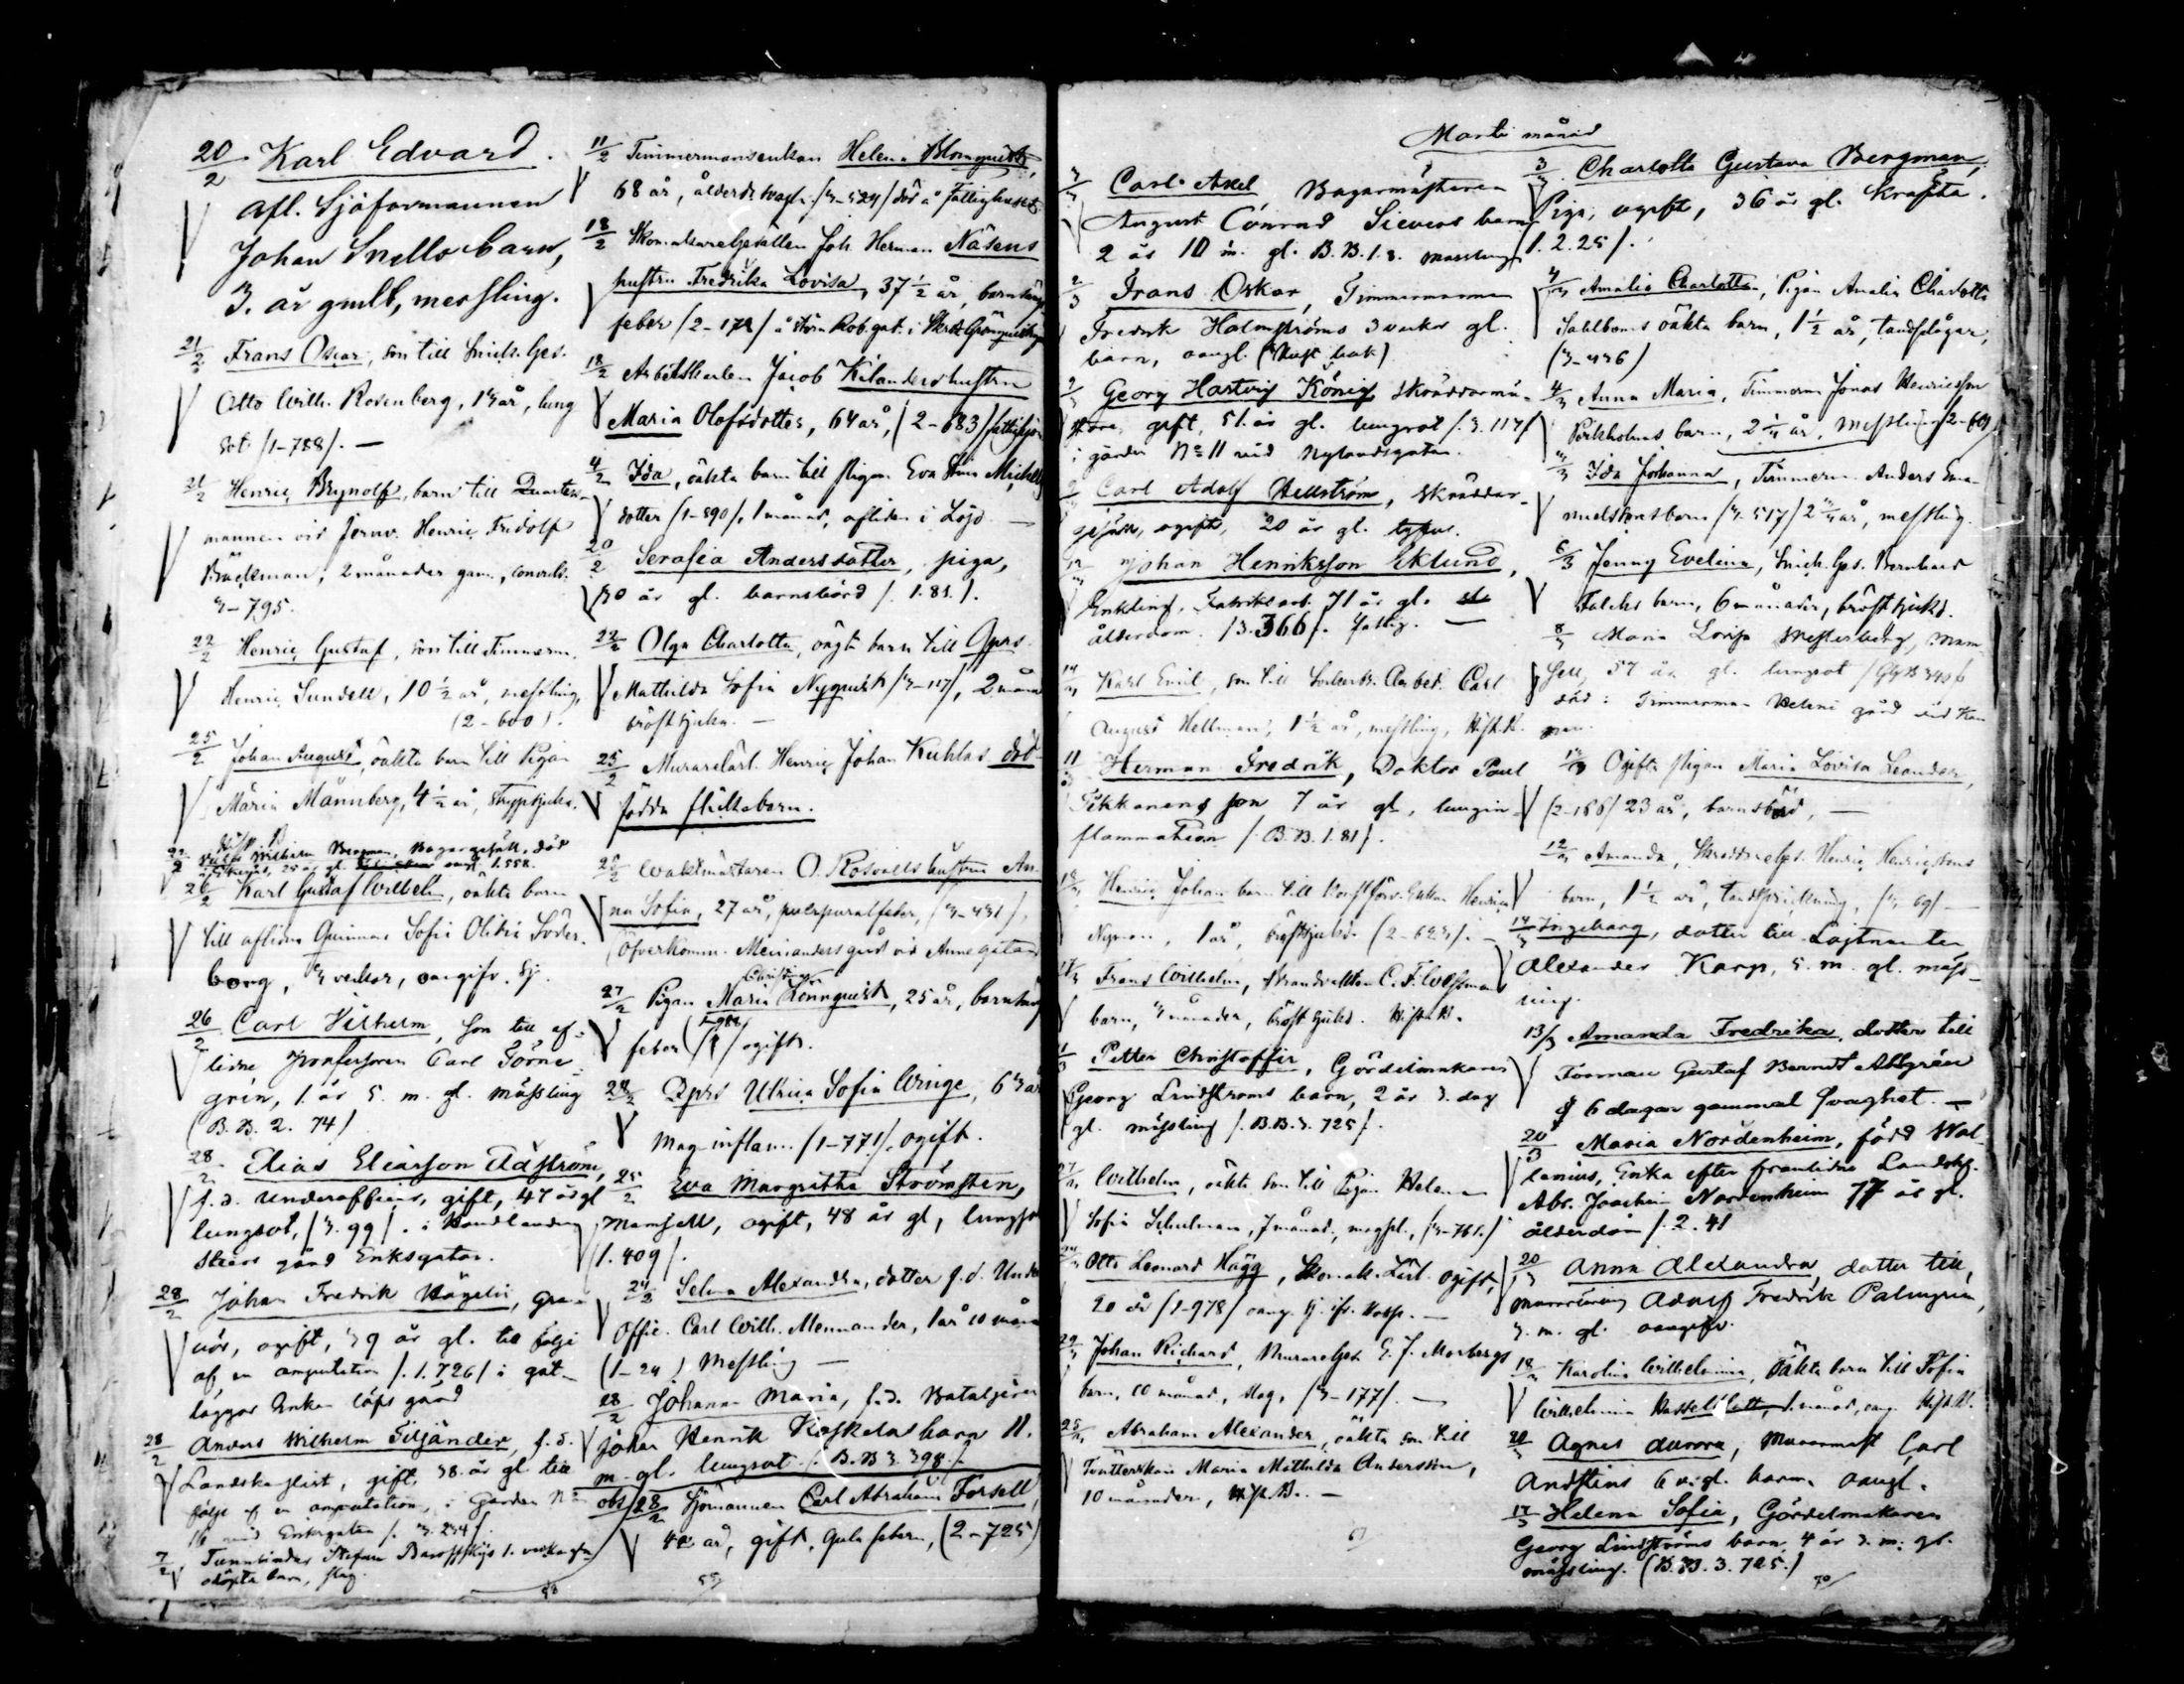 20/2 Karl Edvard.
afl. Sjöformannen
Johan Snello barn,
3. år gmlt, messling.
21/2 Frans Oscar, son till Smids. Ges.
Otto Wilh. Rosenberg, år, lung
sot (1-788). —
21/2 Henric Brynolf, barn till
mannen vid Jernv. Henric Fridolf
Bäckman, 2 månader gam.,
3-795.
22/2 Henric Gustaf, son till Timmerm.
Henric Sundell, 10 1/2 år, messling,
(2-600).
25/2 Johan August, oäkta barn till Pigan
Maria Männberg, 4 1/2 år, Strypsjuka.
22/2 Wilhelm Bergman, Bagargesäll, död
25 år gl. 1.558.
26/2 Karl Gustaf Wilhelm, oäkta barn
till aflidna Qvinnan Sofia Söder-
borg, 3 veckor, oangifv. sj.
26/2 Carl Vilhelm, son till af-
lidne Professoren Carl Törne-
grén, 1. år 5. m. gl. mässling
(B.B. 2. 74)
28/2 Elias Eliasson Rdström,
f.d. Underofficer, gift, 47 år gl
lungsot, (3.99). i Handlanden
gård Eriksgatan.
28/2 Johan Fredrik Hägelin,
ogift, 39 år gl. till följe
af en amputation (1.726) i gat-
läggar Enkan Löfs gård
28/2 Anders Wilhelm Tiljander, f.d.
Landskanslist, gift, 38. år gl. till
följe af en amputation, i Gården No
16 vid Eriksgatan (3.234).
7/2 Tunnbindar Stefan 1. vecka gla
odöpta barn, slag.
58
11/2 Timmermansenkan Helena Blomqvist,
68 år, ålderdr. (3-524) död å Fattighuset.
18/2 Skomakaregesällen Joh. Herman Näsens
hustru Fredrika Lovisa, 37 1/2 år, barnsängs
feber (2-172) i stora Rob.gat.
18/2 Arbetskarlen Jacob Kilanders hustru
Maria Olofsdotter, 64 år, (2-683)
4/2 Ida, oäkta barn till Pigan Eva Stina Michels
dotter (1-590), 1 månad, afliden i Lojo —
20/2 Serafia Andersdotter, piga,
30 år gl. barnsbörd (1.81.).
22/2 Olga Charlotta, oägta barn till Qprs.
Mathilda Sofia Nyqvist (3-117), 2 måna
bröstsjuka. —
25/2 Murarelärl. Henric Johan Kuhlas död-
födda flickebarn.
25/2 Waktmästaren O. Rosvalls hustru An-
na Sofia, 27 år, puerpuralfeber, (3-431),
Öfverkomm. Meinanders gård vid Annegatan
27/2 Pigan Maria Christina Rönnqvist, 25 år, barnsäng
feber ogift.
28/2 Qprs Ulrica Sofia Winge, 63 år
Mag-inflam. (1-771), ogift.
25/2 Eva Margretha Strömsten,
Mamsell, ogift, 48 år gl, lungsot
(1.409).
24/2 Selma Alexandra, dotter f.d. Under
Offic. Carl Wilh. Mennander, 1 år 10 måna
(1-24) Messling —
28/2 Johanna Maria, f.d. Bataljons
Johan Henrik Koskelas barn 11.
m. gl. lungsot (B.B 3.398.)
obs/ 28/2 Sjömannen Carl Abraham Forsell,
42 år, gift, Gula febern, (2-725)
59
Martii månad
3/3 Carl Axel Bagarmästaren
August Conrad Sievers barn
2 år 10 m. gl. B.B. 1.8. mässling
2/3 Frans Oskar, Timmermannen
Fredrik Holmströms 3 veckor gl.
barn, oangl.
2/3 Georg Hartvig König skräddarmä-
stare, gift, 51. år gl. lungsot (3.117)
i gården No 11 vid Nylandsgatan.
Carl Adolf Hellström, skräddar-
gesäll, ogift, 20 år gl. tyfus.
Johan Henriksson Eklund,
Enkling, Fabriksarb. 71 år gl.
ålderdom. (3.366). Fattig. —
Karl Emil, son till Arbet. Carl
August Hellman, 1 1/2 år, messling,
11/3 Herman Fredrik, Doktor Paul
Tikkanens son 7 år gl., lungin-
flammation (B.B.1.81).
Henric Johan barn till Enkan Henrica
Nyman, 1 år, bröstsjukd. (2-623). —
Frans Wilhelm, Strandvakten C.F.
barn, 3 månader, bröstsjukd.
11/3 Petter Christoffer, Gördelmakaren
Georg Lindströms barn, 2 år 3. dag
gl. mässling (B.B.3.725).
Wilhelm, oäkta son till Pigan Helena
Sofia Schulman, 7 månad., (3-761.)
Otto Leonard Hägg, Skomak. Lärl. ogift,
20 år (1-978)
Johan Richard, Murareges. G.J. Morbergs
barn, 10 månad, slag, (3-177). —
Abraham Alexander, oäkta son till
Tvätterskan Maria Mathilda Andersson,
10 månader, —
61
3/3 Charlotta Gustava Bergman,
Piga, ogift, 36 år gl. Kräfta.
(1.2.25).
4/3 Amalia Charlotta, Pigan Amalia Charlotta
Sahlboms oäkta barn, 1 1/2 år, tandplågor,
(3-436)
4/3 Anna Maria, Timmerm. Jonas Henricsson
Porkholms barn, 2 1/4 år, Messling
Ida Johanna, Timmerm. Anders Ema-
nuelssons barn (3-517) 2 3/4 år, messling.
6/3 Jenny Evelina, Smids. Ges. Bernhard
Falcks barn, 6 månader, bröstsjukd.
8/3 Maria Lovisa Westerberg, Mam-
sell, 57 år gl. lungsot
död i Timmerman Heleni gård vid Kam
pen.
Ogifta Pigan Maria Lovisa Leander,
(2-186) 23 år, barnsbörd, —
12/3 Amanda, Skräddareges. Henric Henricssons
barn, 1 1/2 år, tandsprickning, (3. 69) —
14/3 Ingeborg, dotter till Löjtnanten
Alexander Karp, 5. m. gl. mäss-
ling.
13/3 Amanda Fredrika, dotter till
Forman Gustaf Berndt Ahlgrén
6 dagar gammal svaghet. —
20/3 Maria Nordenheim, född Wal-
lenius, Enka efter framlidne Landskf.
Abr. Joachim Nordenheim 77 år gl.
ålderdom (2.41
20/3 Anna Alexandra, dotter till,
Adolf Fredrik Palmgren,
3. m. gl. oangifv.
18/3 Karolina Wilhelmina, Oäkta barn till Sofia
Wilhelmina 1 månad, oang.
20/3 Agnes Aurora, Murarmäst Carl
Andsténs 6 v. gl. barn. oangl.
17/3 Helena Sofia, Gördelmakaren
Georg Lindströms barn, 4 år 3. m. gl.
mässling. (B.B.3.725.)